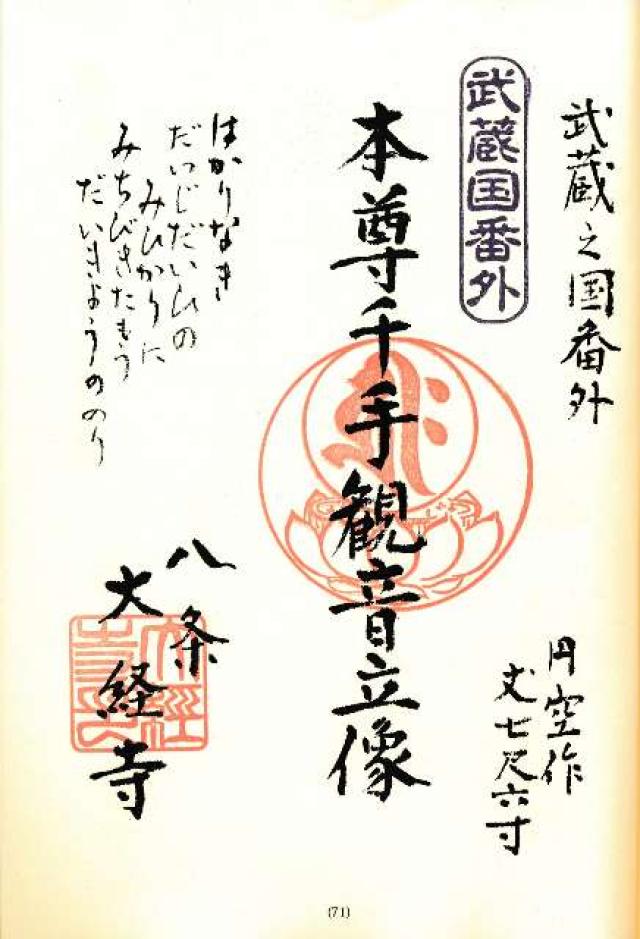 武蔵之国番外
武蔵国番外
円空作
丈七尺六寸
本尊千手観音立像
はかりなき
だいじだいひの
みひかりに
みちびきたもう
だいきょうののり
八条
大経寺
(71)